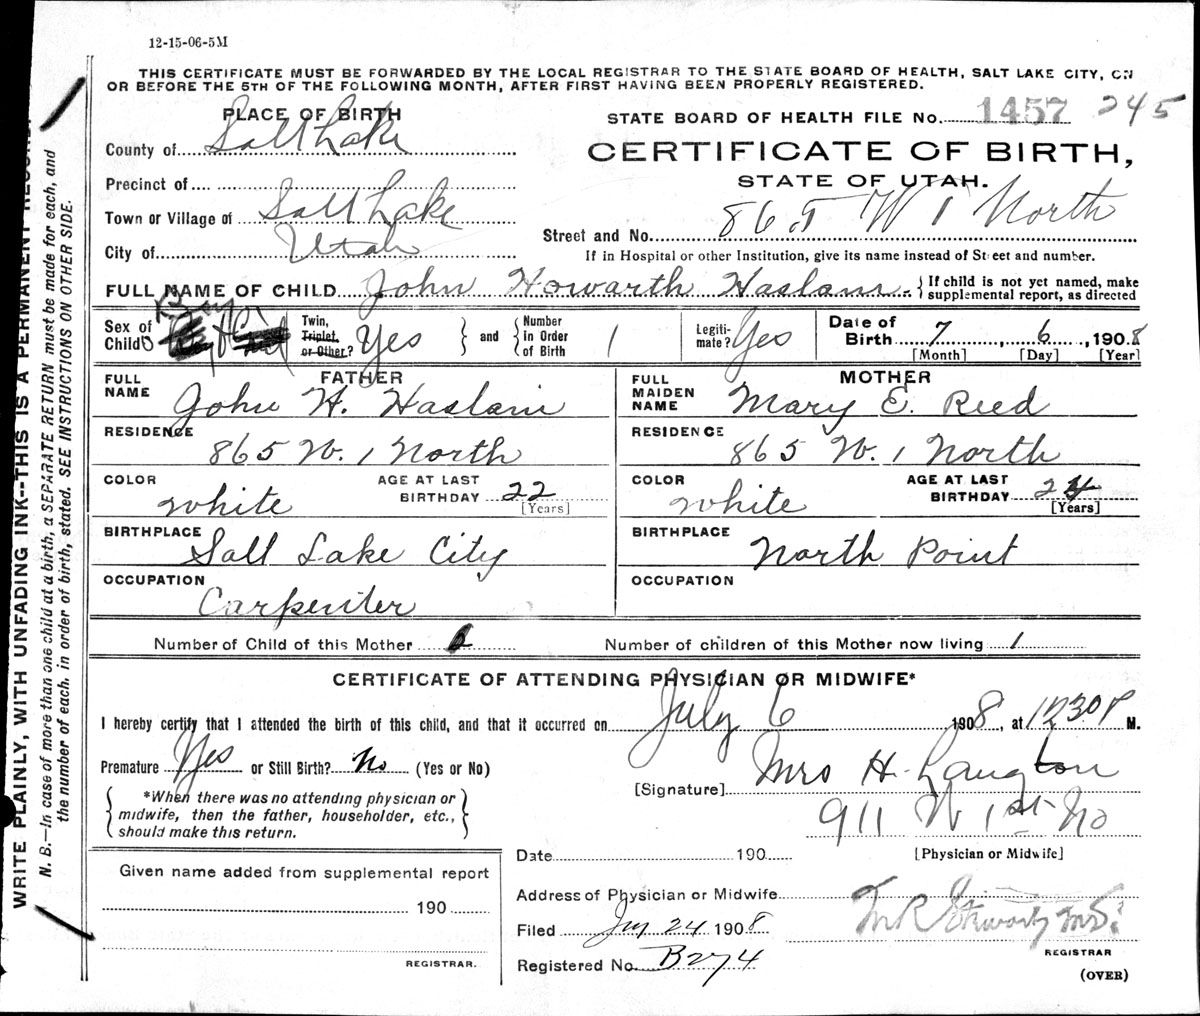 12-15-06-5M
THIS CERTIFICATE MUST BE FORWARDED BY THE LOCAL REGISTRAR TO THE STATE BOARD OF HEALTH, SALT LAKE CITY, ON
OR BEFORE THE 5TH OF THE FOLLOWING MONTH, AFTER FIRST HAVING BEEN PROPERLY REGISTERED.
PLACE OF BIRTH
STATE BOARD OF HEALTH FILE No. 1457 245
County of Salt Lake
CERTIFICATE OF BIRTH,
STATE OF UTAH.
Precinct of
Town or Village of Salt Lake
Street and No. 865 W 1 North
City of Utah
If in Hospital or other Institution, give its name instead of Street and number.
FULL NAME OF CHILD John Howarth Haslam { If child is not yet named, make supplemental report, as directed
Sex of Child Boy
Twin, Triplet, or Other? Yes } and { Number in Order of Birth 1
Legitimate? Yes
Date of Birth 7, 6, 1908
[Month] [Day] [Year]
FATHER
FULL NAME John H. Haslam
RESIDENCE
865 W. 1 North
COLOR white
AGE AT LAST BIRTHDAY 22
[Years]
BIRTHPLACE
Salt Lake City
OCCUPATION
Carpenter
MOTHER
FULL MAIDEN NAME Mary E. Reed
RESIDENCE
865 W. 1 North
COLOR white
AGE AT LAST BIRTHDAY 24
[Years]
BIRTHPLACE
North Point
OCCUPATION
Number of Child of this Mother
Number of children of this Mother now living 1
CERTIFICATE OF ATTENDING PHYSICIAN OR MIDWIFE*
I hereby certify that I attended the birth of this child, and that it occurred on July 6 1908, at 1230 P M.
Premature Yes or Still Birth? No (Yes or No)
*When there was no attending physician or
midwife, then the father, householder, etc.,
should make this return.
[Signature] Mrs H. Langton
911 W 1st No
[Physician or Midwife]
Date 190
Address of Physician or Midwife
Given name added from supplemental report
190
REGISTRAR.
Filed 24 1908
REGISTRAR
Registered No. B274
(OVER)
WRITE PLAINLY, WITH UNFADING INK--THIS IS A PERMANENT RECORD.
N. B.—In case of more than one child at a birth, a SEPARATE RETURN must be made for each, and
the number of each, in order of birth, stated. SEE INSTRUCTIONS ON OTHER SIDE.